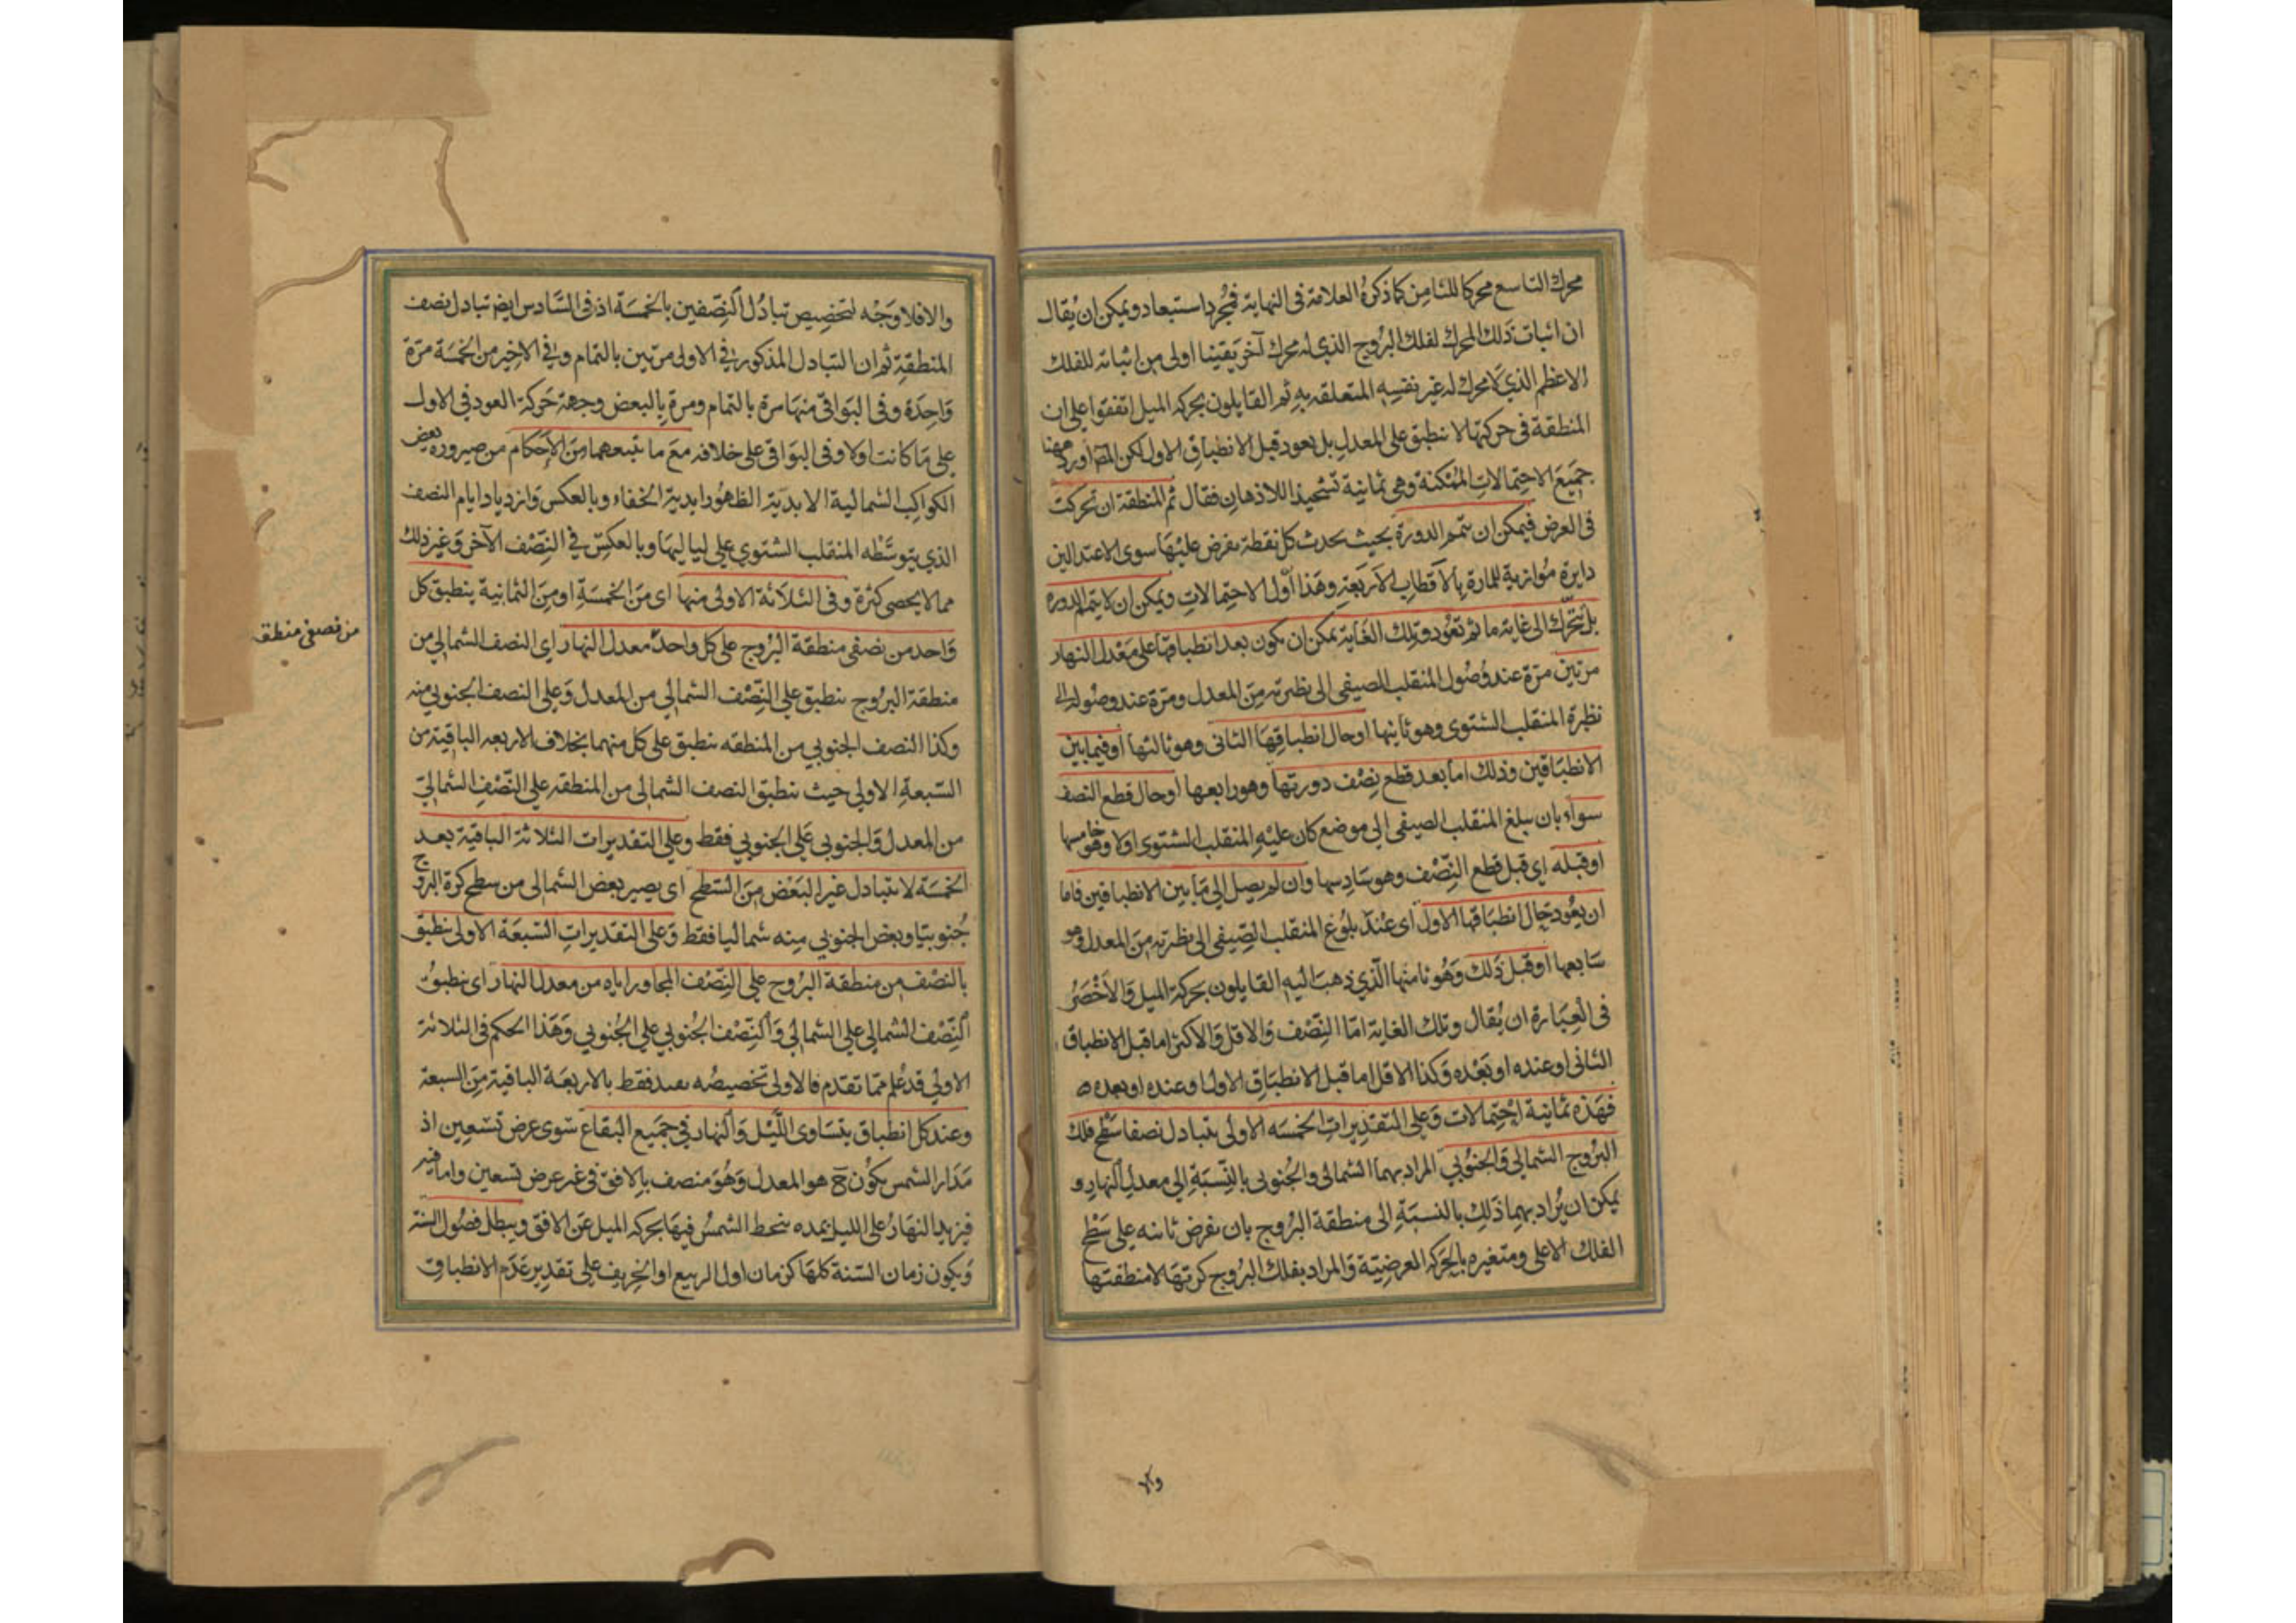 محرك التاسع محركا للثامن كما ذكره العلامة فى النهاية فمجرد استبعاد ويمكن ان يُقال
ان اثبات ذلك المحرك لفلك البُروج الذي له محرك آخر يقينا اولى من اثباته للفلك
الاعظم الذي لا محرك له غير نفسه المتعلقه به ثم القايلون بحركة الميل اتفقوا على ان
المنطقة فى حركتها لا ننطبق على المعدل بل يعود قبل الانطباق الاول لكن المص اورد ههنا
جميع الاحتمالات الممكنة وهى ثمانية تشحيذا للاذهان فقال ثم المنطقة ان تحركت
فى العرض فيمكن ان تتم الدورة بحيث يحدث كل نقطة يفرض عليها سوى الاعتدالين
دايرة مُوازية للمارة بالاقطاب الاربعة وهذا اول الاحتمالات ويمكن ان لا يتم الدوره
بل تتحرك الى غاية ما ثم تعُود وتلك الغاية يمكن ان يكون بعد انطباقها على معدل النهار
مرتين مرة عند وُصُول المنقلب الصيفى الى نظيرته من المعدل ومرة عند وصُوله الى
نظيرة المنقلب الشتوى وهو ثانيها او حال انطباقها الثانى وهو ثالثها او فيما بين
الانطباقين وذلك اما بعد قطع نِصْف دورتها وهو رابعها او حال قطع النصف
سواء بان يبلغ المنقلب الصيفى الى موضع كان عليه المنقلب الشتوى اولا وهو خامسها
او قبله اى قبل قطع النِّصْف وهو سَادسها وان لم يصل الى ما بين الانطباقين فاما
ان يعُود حال انطباقها الاول اى عند بلُوغ المنقلب الصِّيفى الى نظيرته من المعدل وهو
سابعها او قبل ذلك وهُو ثامنها الّذي ذهب اليه القايلون بحركة الميل وَالاخْصَرُ
فى العِبَارة ان يُقال وتلك الغاية امّا النِّصْف وَالاقل وَالاكثر اما قبل الانطباق
الثانى او عنده او بَعْده وَكذا الاقل اما قبل الانطباق الاول او عنده او بعده ه
فهَذه ثمانية احْتِمالات وَعلى التقديرات الخمسَه الاولى يتبادل نصفا سَطْح فلك
البُروج الشمالى وَالجنُوبي المراد بهما الشمالى والجُنوبى بالنِّسبَة الى معدل النهار و
يمكن ان يُراد بهما ذَلك بالنسبَةِ الى منطقة البُروج بان يفرض ثابته على سَطْح
الفلك الاعلى ومتغيره بالحَركه العرضِيّة وَالمراد بفلك البُروج كرتهَا لا منطقتها
والا فلا وَجْه لتخصيص تبادُل النِّصفين بالخمسَة اذ فى السَّادس ايض تبادل نصف
المنطقة ثم ان التبادل المذكور في الاولى مرتين بالتمام وفي الاخير من الخمسَة مرّة
وَاحِدَة وفى البوَاقى منهَا مرة بالتمام ومرة بالبعض وجهة حَركة العود فى الاول
على مَا كانت اولا وفى البوَاقى على خلافه مَعَ ما يتبعهما منَ الاَحكام من صيرورة بعض
الكواكب الشمالية الابدية الظهُور ابدية الخفاء وبالعكس وَازدياد ايام النصف
الذي يتوسَّطه المنقلب الشتوي على لياليهَا وبالعكسِ في النِّصْف الآخر وَغير ذلك
مما لا يحصى كثرة وفى الثلاثة الاولى منها اى مَن الخمسَةِ او من الثمانية ينطبق كل
وَاحد من نصفى منطقة البُروج على كل واحد معدل النهار اي النصف الشمالي من
من نصفى منطقة
منطقة البروج ينطبق على النِّصْف الشمالي من المعدل وَعلى النصف الجنوبي منه
وكذا النصف الجنوبي من المنطقه ينطبق على كل منهما بخلاف الاربعه الباقية من
السّبعة الاولى حيث ينطبق النصف الشمالى من المنطقه على النِّصْف الشمالِيّ
من المعدل وَالجنوبي عَلى الجنوبي فقط وعلى التقديرات الثلاثة الباقية بعد
الخمسَة لا يتبادل غير البَعْض من السَّطح اى يصير بعض الشمالى من سطح كرة البروج
جُنوبيّا وبعض الجنوبي منه شماليا فقط وَعلى التقديراتِ السّبعَة الاولى ينطبق
بالنصْف من منطقة البرُوج على النِّصْف المجاور اياه من معدل النهار اى ينطبقُ
النِّصْف الشمالى على الشمالي وَالنِّصْف الجُنوبي على الجُنوبي وَهَذا الحكم فى الثلاثة
الاولى قد عُلم ممّا تقدم فالاولى تخصيصُه بعيد فقط بالاربعَة الباقية مِن السبعة
وعند كل انطباق يتسَاوى اللّيْل وَالنهار في جميع البقاع سَوى عرض تسْعين اذ
مَدَار الشمس يكُون ح هو المعدل وَهُوَ منصف بالافق فى غير عرض تسعين واما فيه
فيزيد النهَارُ على الليل بمده ينحط الشمسُ فيهَا بحركه الميل عَن الافق ويبطل فصُول السنة
وَيكون زمان السّنة كلهَا كزمان اول الربيع او الخريف على تقدير عَدَم الانطباق